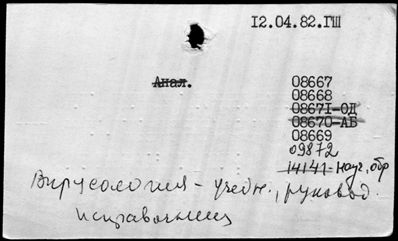 12.04.82.ГШ
Анал.
08667
08668
08671-ОД
08670-АБ
08669
09872
14141 науч, обр
Вирусология - учебн., руковод.
и справочники